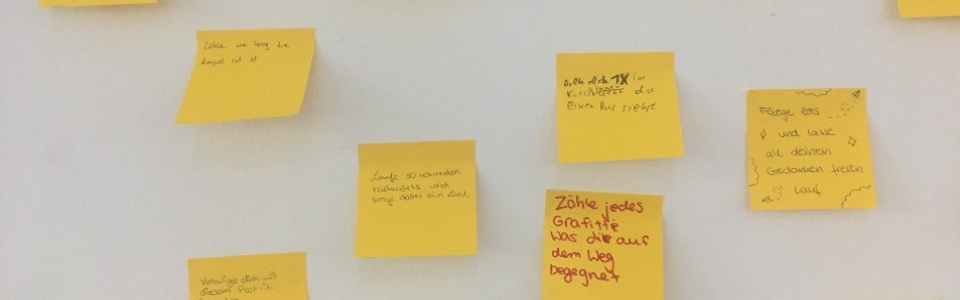 Zähle wie lang die
Ampel rot ist
Dreh dich 1x im
du
einen Bus siehst
Fliege los
und lasse
all deinen
Gedanken freien
Lauf
Laufe 30 sekunden
rückwärts und
singe dabei ein Lied
Zähle jedes
Grafitti
Was dir auf
dem Weg
begegnet
dich mit
diesem Post-it